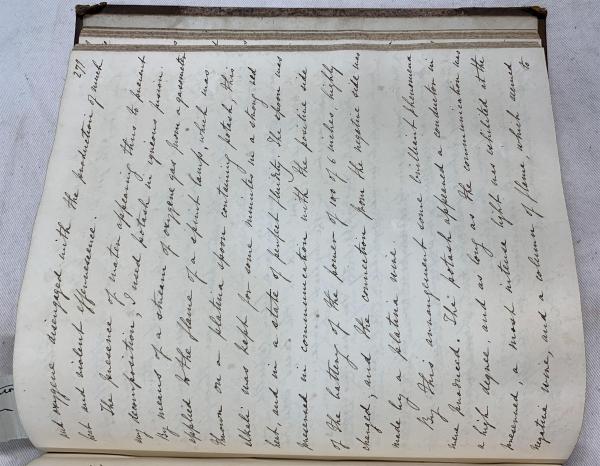 and oxygene disengaged with the production of much
heat and violent effervescence.
The presence of water appearing thus to prevent
any decomposition, I used potash in igneous fusion.
By means of a stream of oxygene gas from a gasometer
applied to the flame of a spirit lamp, which was
thrown on a platina spoon containing potash, this
alkali was kept for some minutes in a strong red
heat, and in a state of perfect fluidity. The spoon was
preserved in communication with the positive side
of the battery of the power of 100 of 6 inches, highly
charged; and the connection from the negative side was
made by a platina wire.
By this arrangement some brilliant phenomena
were produced. The potash appeared a conductor in
a high degree, and as long as the communication was
preserved, a most intense light was exhibited at the
negative wire, and a column of flame, which seemed to